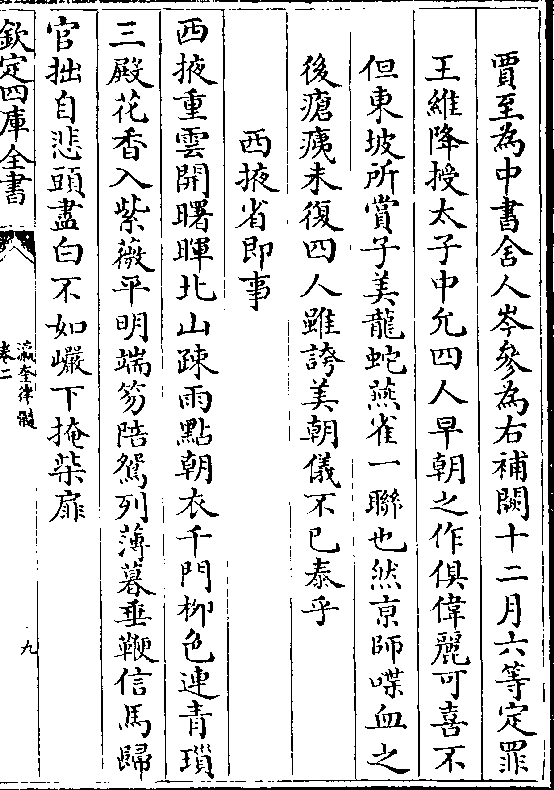 賈至為中書舍人岑參為右補闕十二月六等定罪
王維降授太子中允四人早朝之作俱偉麗可喜不
但東坡所賞子美龍蛇燕雀一聯也然京師喋血之
後瘡痍未復四人雖誇美朝儀不已泰乎
西掖省即事
西掖重雲開曙暉北山疎雨點朝衣千門栁色連青瑣
三殿花香入紫薇平明端笏陪鴛列薄暮垂鞭信馬歸
官拙自悲頭盡白不如巗下掩柴扉
欽定四庫全書
瀛奎律髓
卷二
九